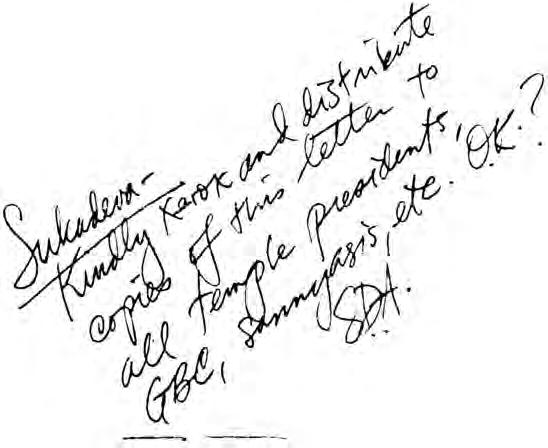 Sukadeva-
Kindly xerox and distribute
copies of this letter to
all temple presidents,
GBC, sannyasis, etc. O.K.?
SDA.